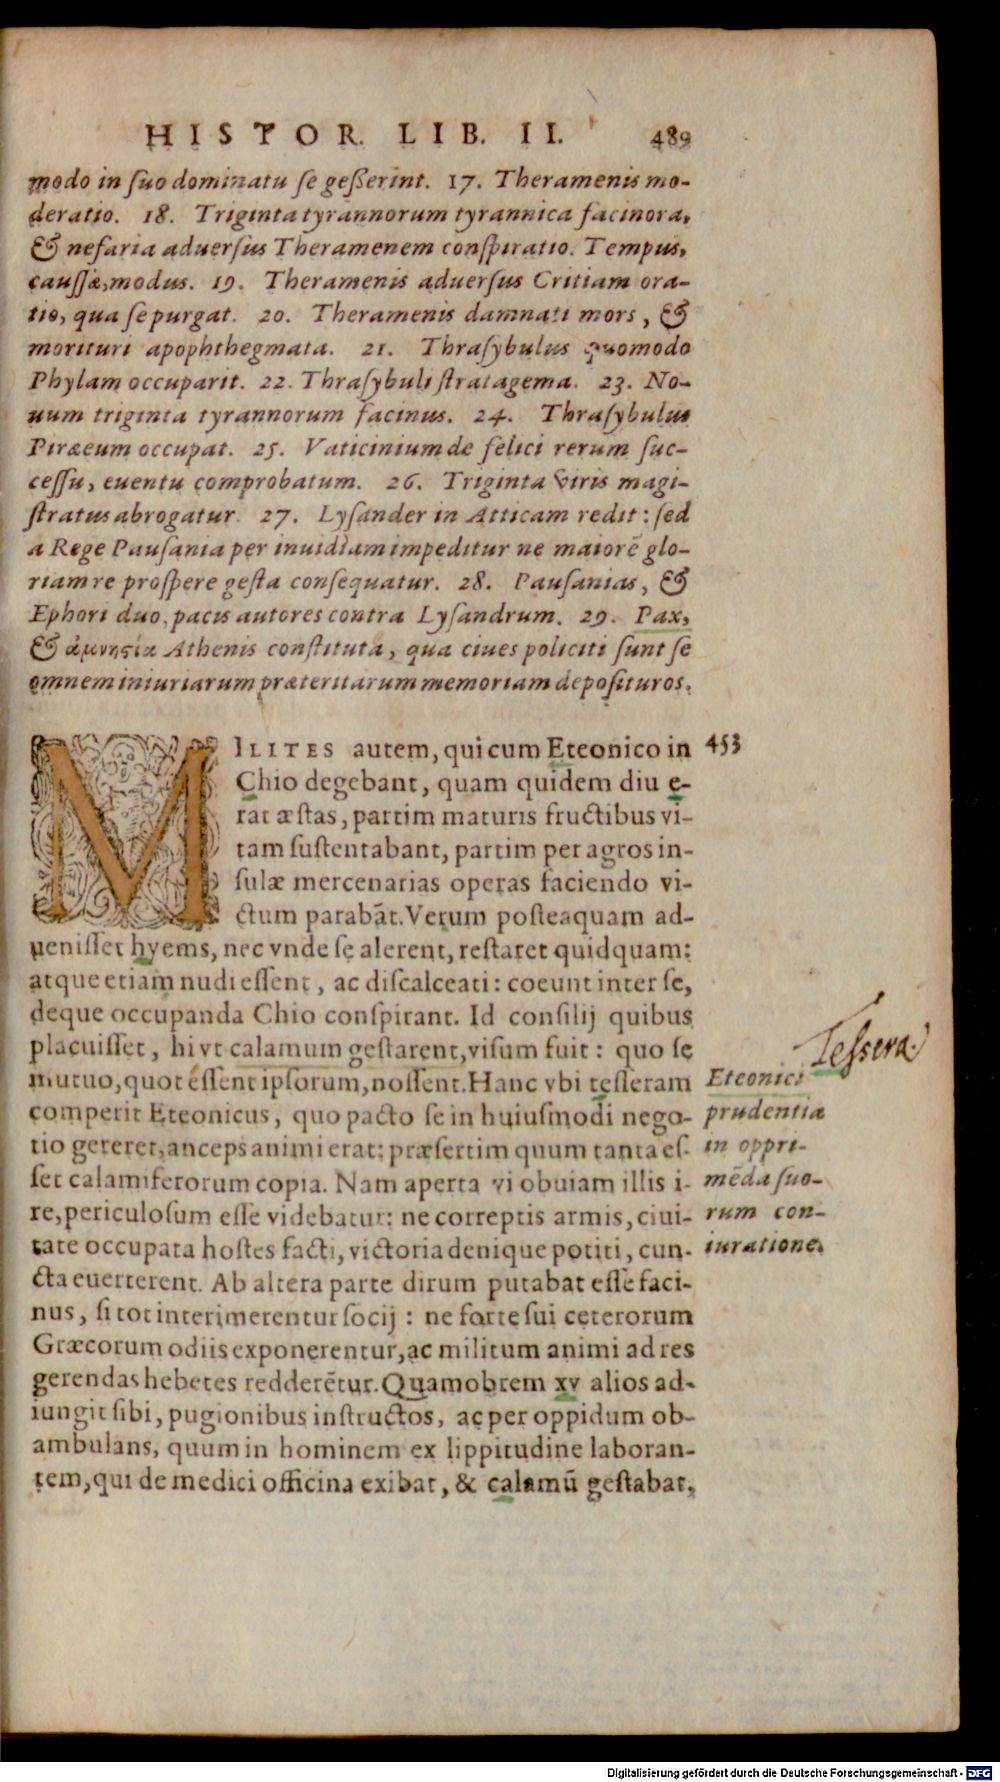 HISTOR. LIB. II. 489
modo in ſuo dominatu ſe geßerint. 17. Theramenis mo-
deratio. 18. Triginta tyrannorum tyrannica facinora,
& nefaria aduerſus Theramenem conſpiratio. Tempus,
cauſſæ, modus. 19. Theramenis aduerſus Critiam ora-
tio, qua ſe purgat. 20. Theramenis damnati mors, &
morituri apophthegmata. 21. Thraſybulus quomodo
Phylam occuparit. 22. Thraſybuli ſtratagema. 23. No-
uum triginta tyrannorum facinus. 24. Thraſybulus
Piræeum occupat. 25. Vaticinium de felici rerum ſuc-
ceſſu, euentu comprobatum. 26. Triginta viris magi-
ſtratus abrogatur. 27. Lyſander in Atticam redit: ſed
a Rege Pauſania per inuidiam impeditur ne maiorē glo-
riam re proſpere geſta conſequatur. 28. Pauſanias, &
Ephori duo, pacis autores contra Lyſandrum. 29. Pax,
& ἀμνηςία Athenis conſtituta, qua ciues policiti ſunt ſe
omnem iniuriarum præteritarum memoriam depoſituros.
MILITES autem, qui cum Eteonico in 453
Chio degebant, quam quidem diu e-
rat æſtas, partim maturis fructibus vi-
tam ſuſtentabant, partim per agros in-
ſulæ mercenarias operas faciendo vi-
ctum parabāt. Verum poſteaquam ad-
ueniſſet hyems, nec vnde ſe alerent, reſtaret quidquam:
atque etiam nudi eſſent, ac diſcalceati: coeunt inter ſe,
deque occupanda Chio conſpirant. Id conſilij quibus
placuiſſet, hi vt calamum geſtarent, viſum fuit: quo ſe
mutuo, quot eſſent ipſorum, noſſent. Hanc vbi teſſeram
comperit Eteonicus, quo pacto ſe in huiuſmodi nego-
tio gereret, anceps animi erat: præſertim quum tanta eſ-
ſet calamiferorum copia. Nam aperta vi obuiam illis i-
re, periculoſum eſſe videbatur: ne correptis armis, ciui-
tate occupata hoſtes facti, victoria denique potiti, cun-
cta euerterent. Ab altera parte dirum putabat eſſe faci-
nus, ſi tot interimerentur ſocij: ne forte ſui ceterorum
Græcorum odiis exponerentur, ac militum animi ad res
gerendas hebetes redderētur. Quamobrem xv alios ad-
iungit ſibi, pugionibus inſtructos, ac per oppidum ob-
ambulans, quum in hominem ex lippitudine laboran-
tem, qui de medici officina exibat, & calamū geſtabat,
Tessera.
Eteonici
prudentia
in oppri-
mēda ſuo-
rum con-
iuratione.
Digitalisierung gefördert durch die Deutsche Forschungsgemeinschaft - DFG